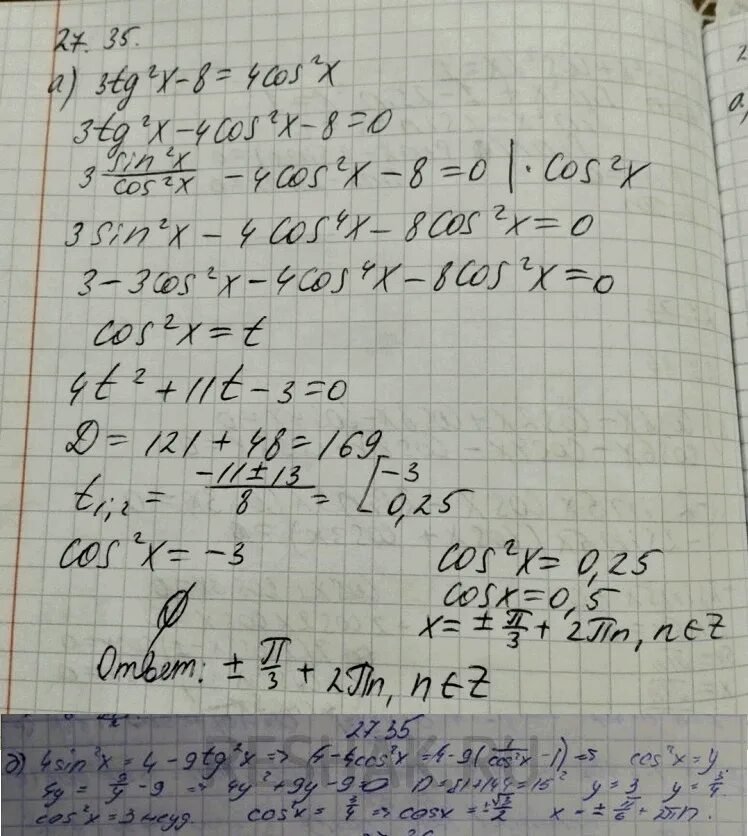 27. 35.
а) 3tg²x - 8 = 4cos²x
3tg²x - 4cos²x - 8 = 0
3 sin²x/cos²x - 4cos²x - 8 = 0 | · cos²x
3sin²x - 4cos⁴x - 8cos²x = 0
3 - 3cos²x - 4cos⁴x - 8cos²x = 0
cos²x = t
4t² + 11t - 3 = 0
D = 121 + 48 = 169
t₁,₂ = (-11 ± 13)/8 = [ -3
0,25
cos²x = -3
∅
cos²x = 0,25
cosx = 0,5
x = ± π/3 + 2πn, n ∈ Z
Ответ: ± π/3 + 2πn, n ∈ Z
27.35
4sin²x = 4 - 9tg²x => 4 - 4cos²x = 4 - 9(1/cos²x - 1) => cos²x = y
4y = 9/y - 9 => 4y² + 9y - 9 = 0 D = 81 + 144 = 15²
cos²x = 3/4 => cosx = ±√3/2 x = ± π/6 + 2πn.